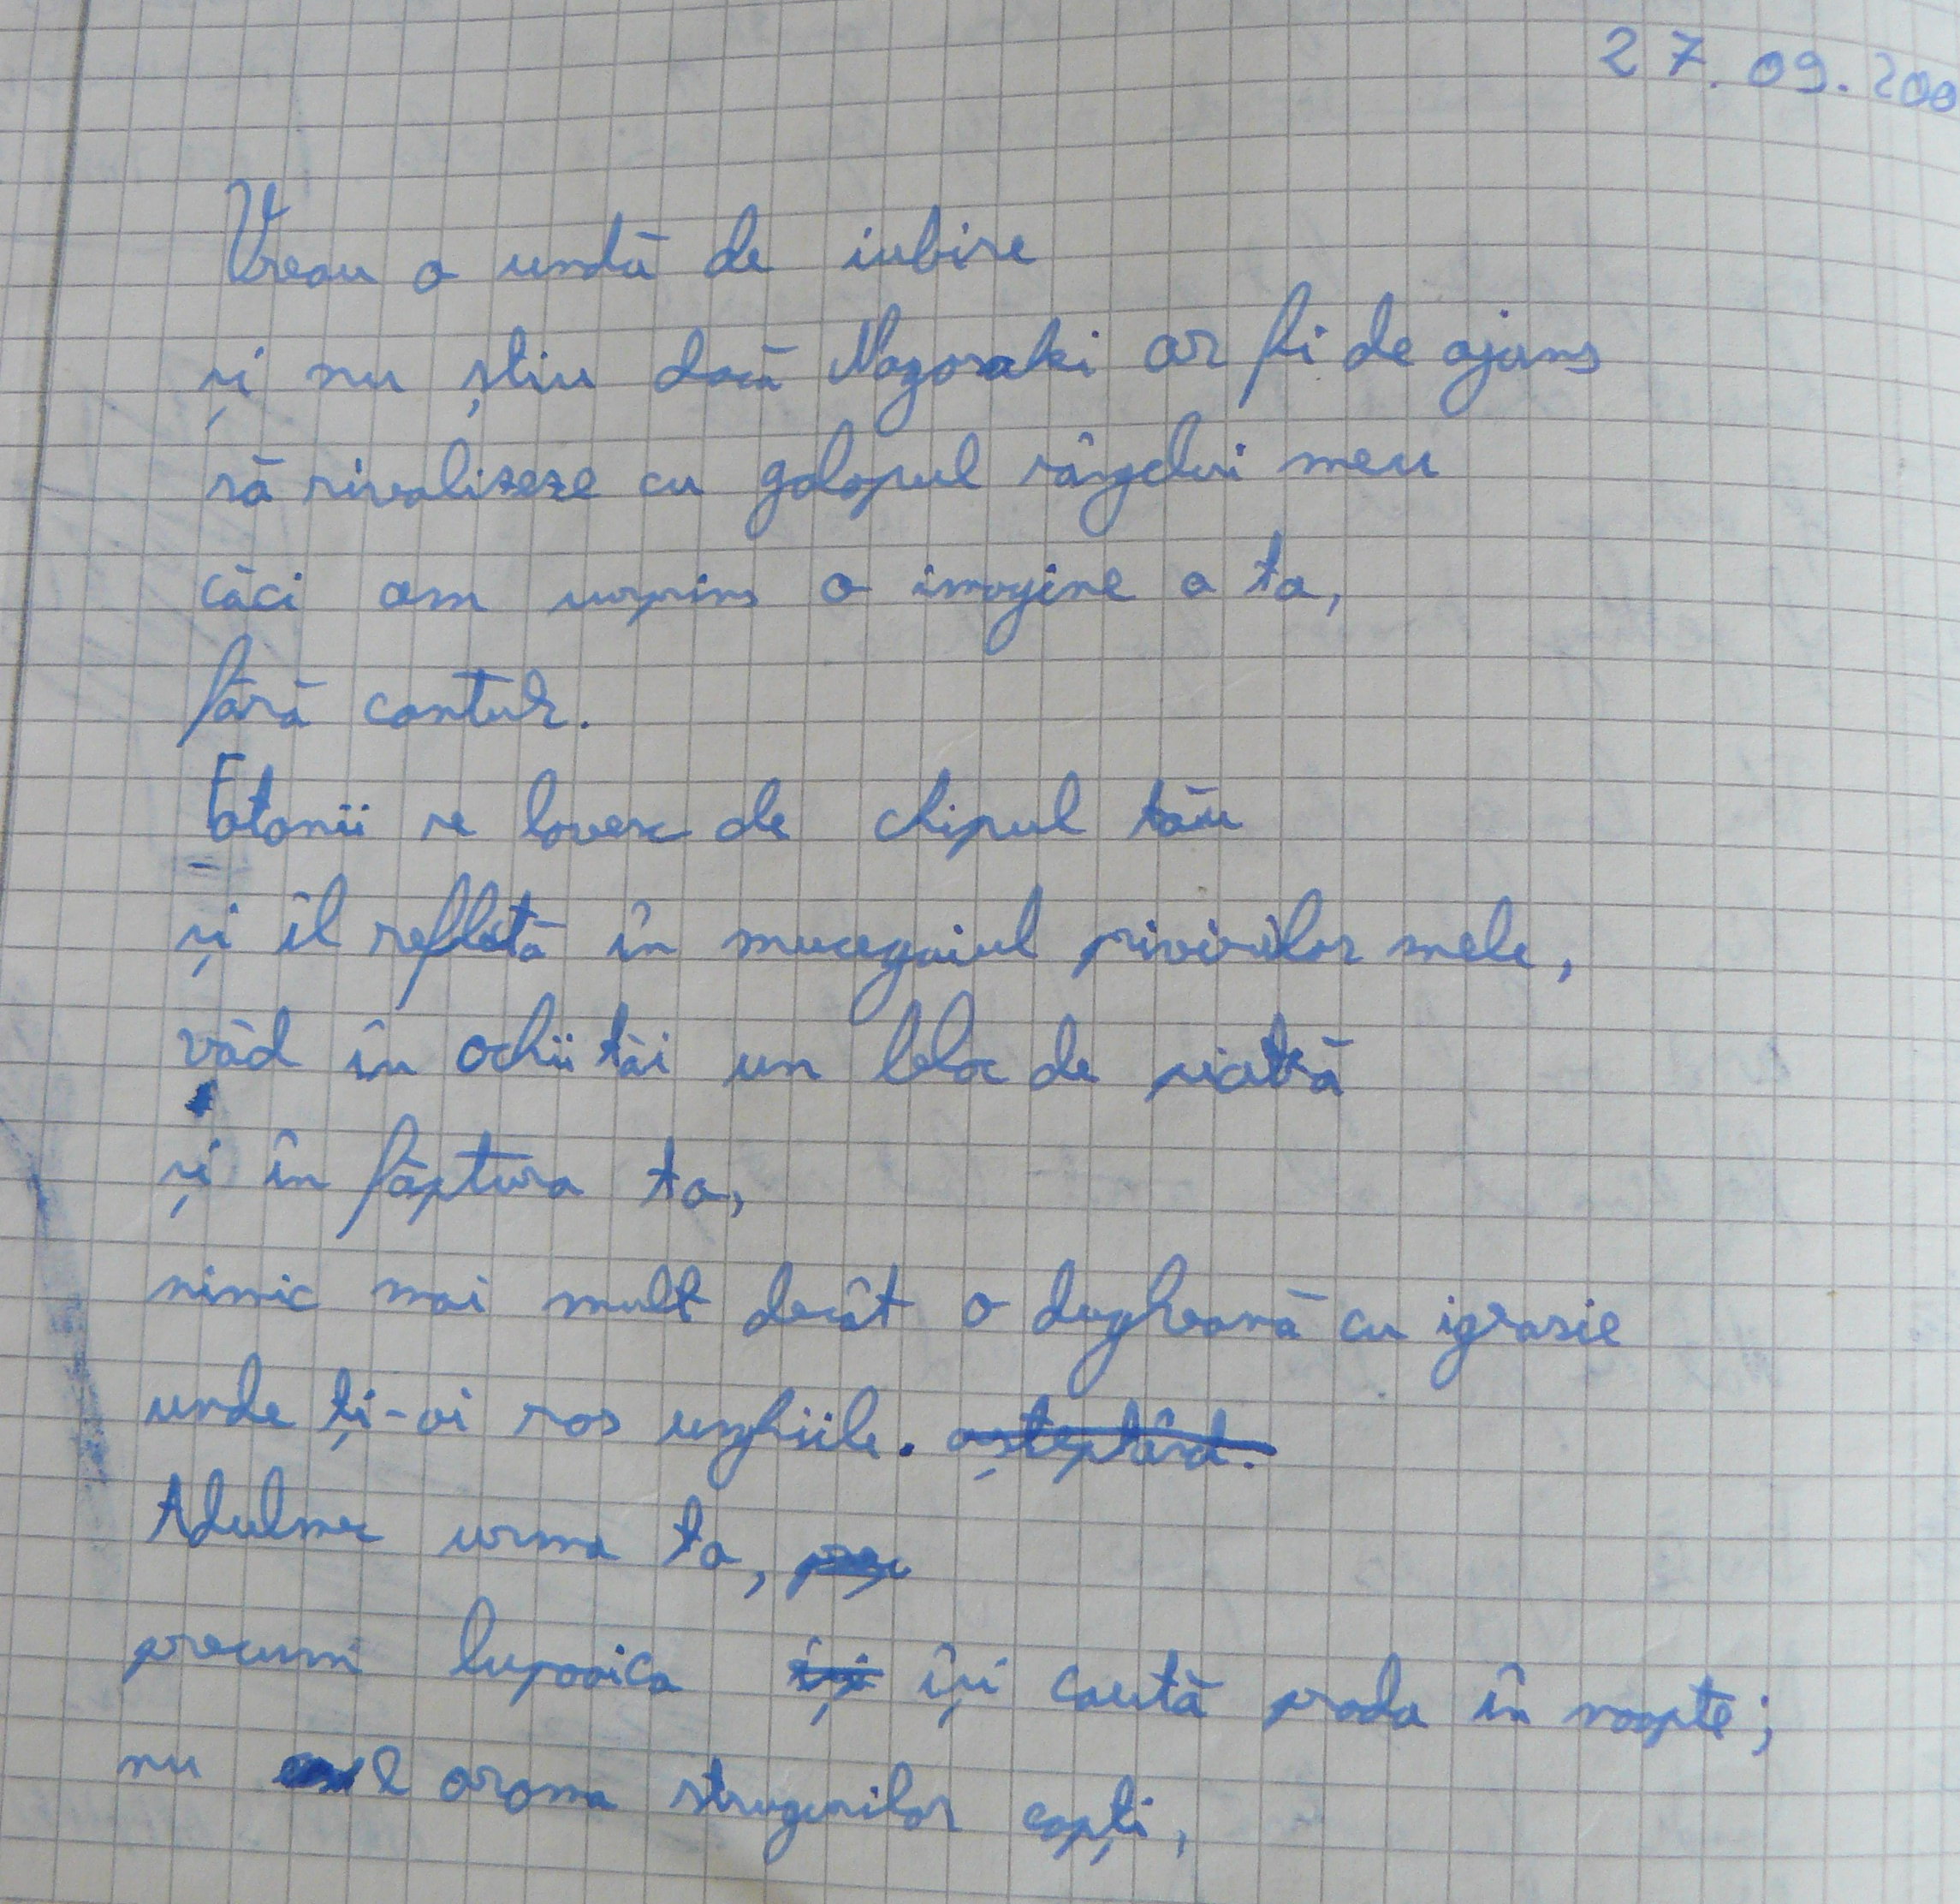 27.09.200
Vreau o undă de iubire
și nu știu dacă Nagasaki ar fi de ajuns
să rivalizeze cu galopul sângelui meu
căci am surprins o imagine a ta,
fără contur.
Fotonii se lovesc de chipul tău
și îl reflectă în mucegaiul privirilor mele,
văd în ochii tăi un bloc de piatră
și în făptura ta,
nimic mai mult decât o dugheană cu igrasie
unde ți-ai ros unghiile. așteptând.
Adulmec urma ta,
precum lupoaica își își caută prada în noapte;
nu e aroma strugurilor copți,